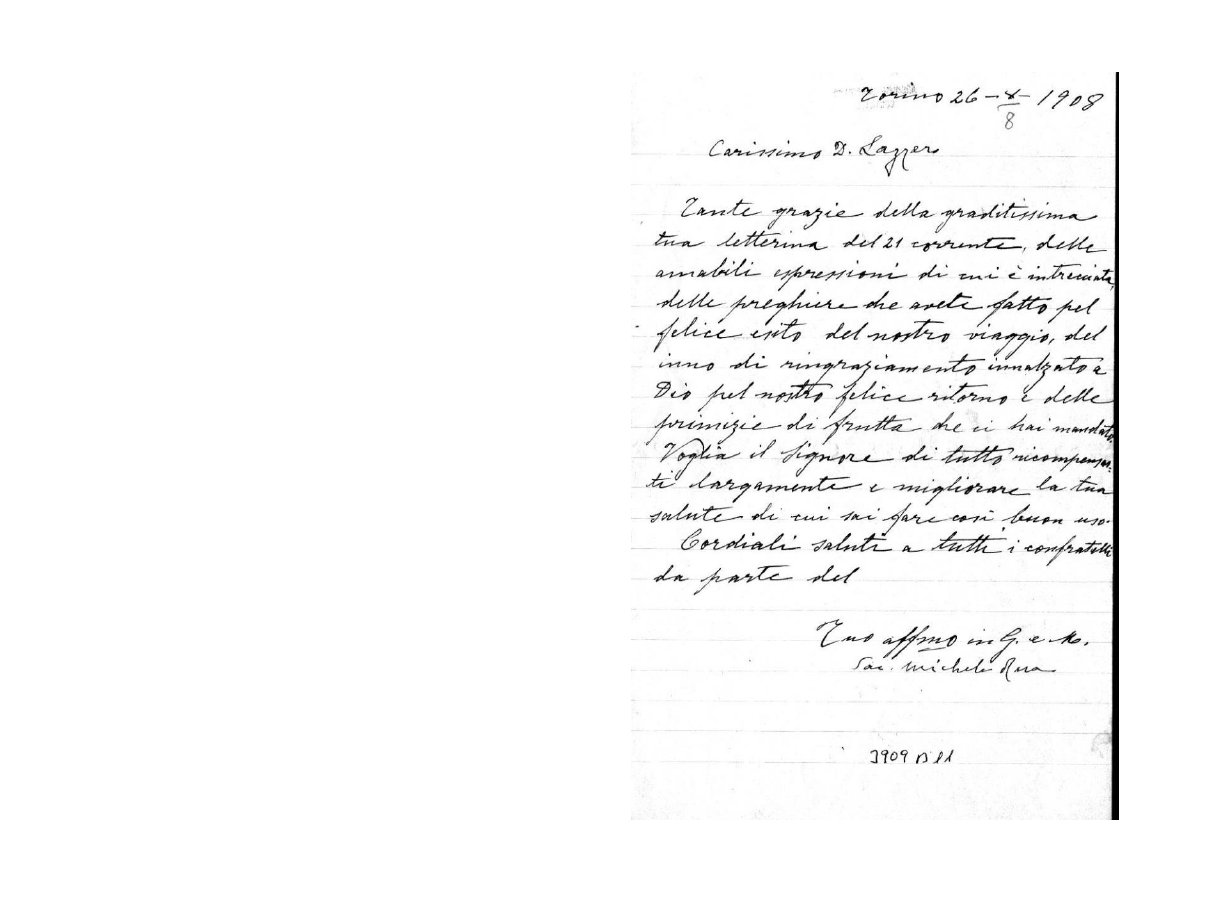 Torino 26 - X - 1908
8
Carissimo D. Lazzero
Tante grazie della graditissima
tua letterina del 21 corrente, delle
amabili espressioni di cui è intrecciata,
delle preghiere che avete fatto pel
felice esito del nostro viaggio, del
inno di ringraziamento innalzato a
Dio pel nostro felice ritorno e delle
primizie di frutta che ci hai mandato.
Voglia il Signore di tutto ricompensar-
ti largamente e migliorare la tua
salute di cui sai fare così buon uso.
Cordiali saluti a tutti i confratelli
da parte del
Tuo affmo in G. e M.
Sac. Michele Rua
3909 B 11